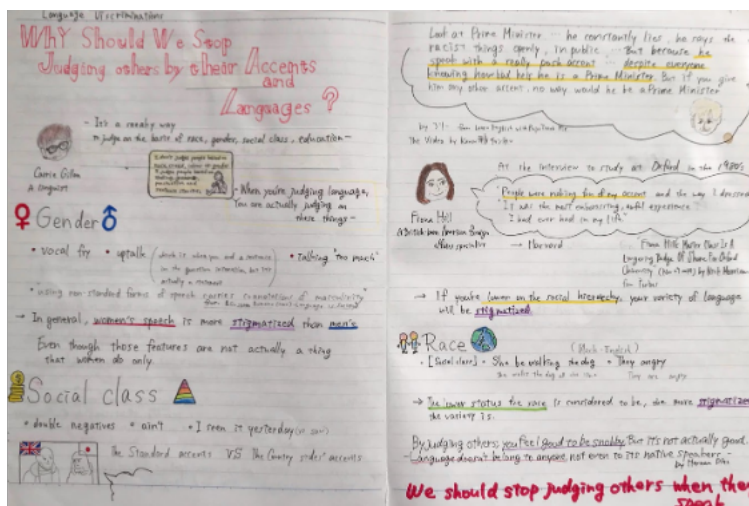 Language Discrimination
Why Should We Stop
Judging others by their Accents
and
Languages?
- It's a sneaky way
to judge on the basis of race, gender, social class, education -
Carrie Gillon
A Linguist
- When you're judging language,
You are actually judging on
these things -
Gender
• vocal fry • uptalk (which is when you end a sentence
in the question intonation, but it's
actually a statement
• Talking "too much"
"using non-standard forms of speech carries connotations of masculinity"
→ In general, women's speech is more stigmatized than men's
Even though those features are not actually a thing
that women do only.
Social class
• double negatives • ain't • I seen it yesterday
The Standard accents VS The Country sides' accents
Look at Prime Minister ... he constantly lies, he says the
racist things openly, in public ... But because he
speak with a really posh accent ... despite everyone
knowing how bad he is he is a Prime Minister. But if you give
him any other accent, no way would he be a Prime Minister
At the interview to study at Oxford in the 1980s
"People were making fun of my accent and the way I dressed
It was the most embarrassing, awful experience
I had ever had in my life"
Fiona Hill
A British born American foreign
affairs specialist
→ Harvard
→ If you're lower on the social hierarchy, your variety of language
will be stigmatized.
Race
(Black English)
• [Social class] • She be walking the dog • They angry
They are angry
→ The lower status the race is considered to be, the more stigmatized
the variety is.
By judging others, you feel good to be snobby. But it's not actually good.
- Language doesn't belong to anyone, not even to its native speakers -
We should stop judging others when they
speak